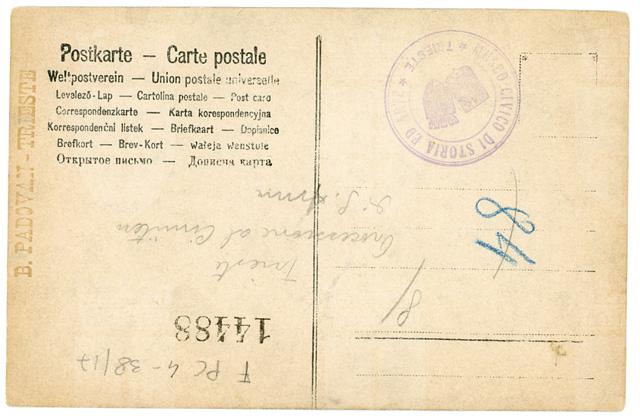 Postkarte — Carte postale
Weltpostverein — Union postale universelle
Levelező-Lap — Cartolina postale — Post card
Correspondenzkarte — Karta korespondencyjna
Korrespondenční listek — Briefkaart — Dopisnice
Brefkort — Brev-Kort — Waleja wenstule
Открытое письмо — Дописна карта
B. PADOVAN - TRIESTE
CIVICO DI STORIA ED
TRIESTE
84
8/
Trieste
Processione al Cimitero
di S. Anna
14488
F PC 4-38/17